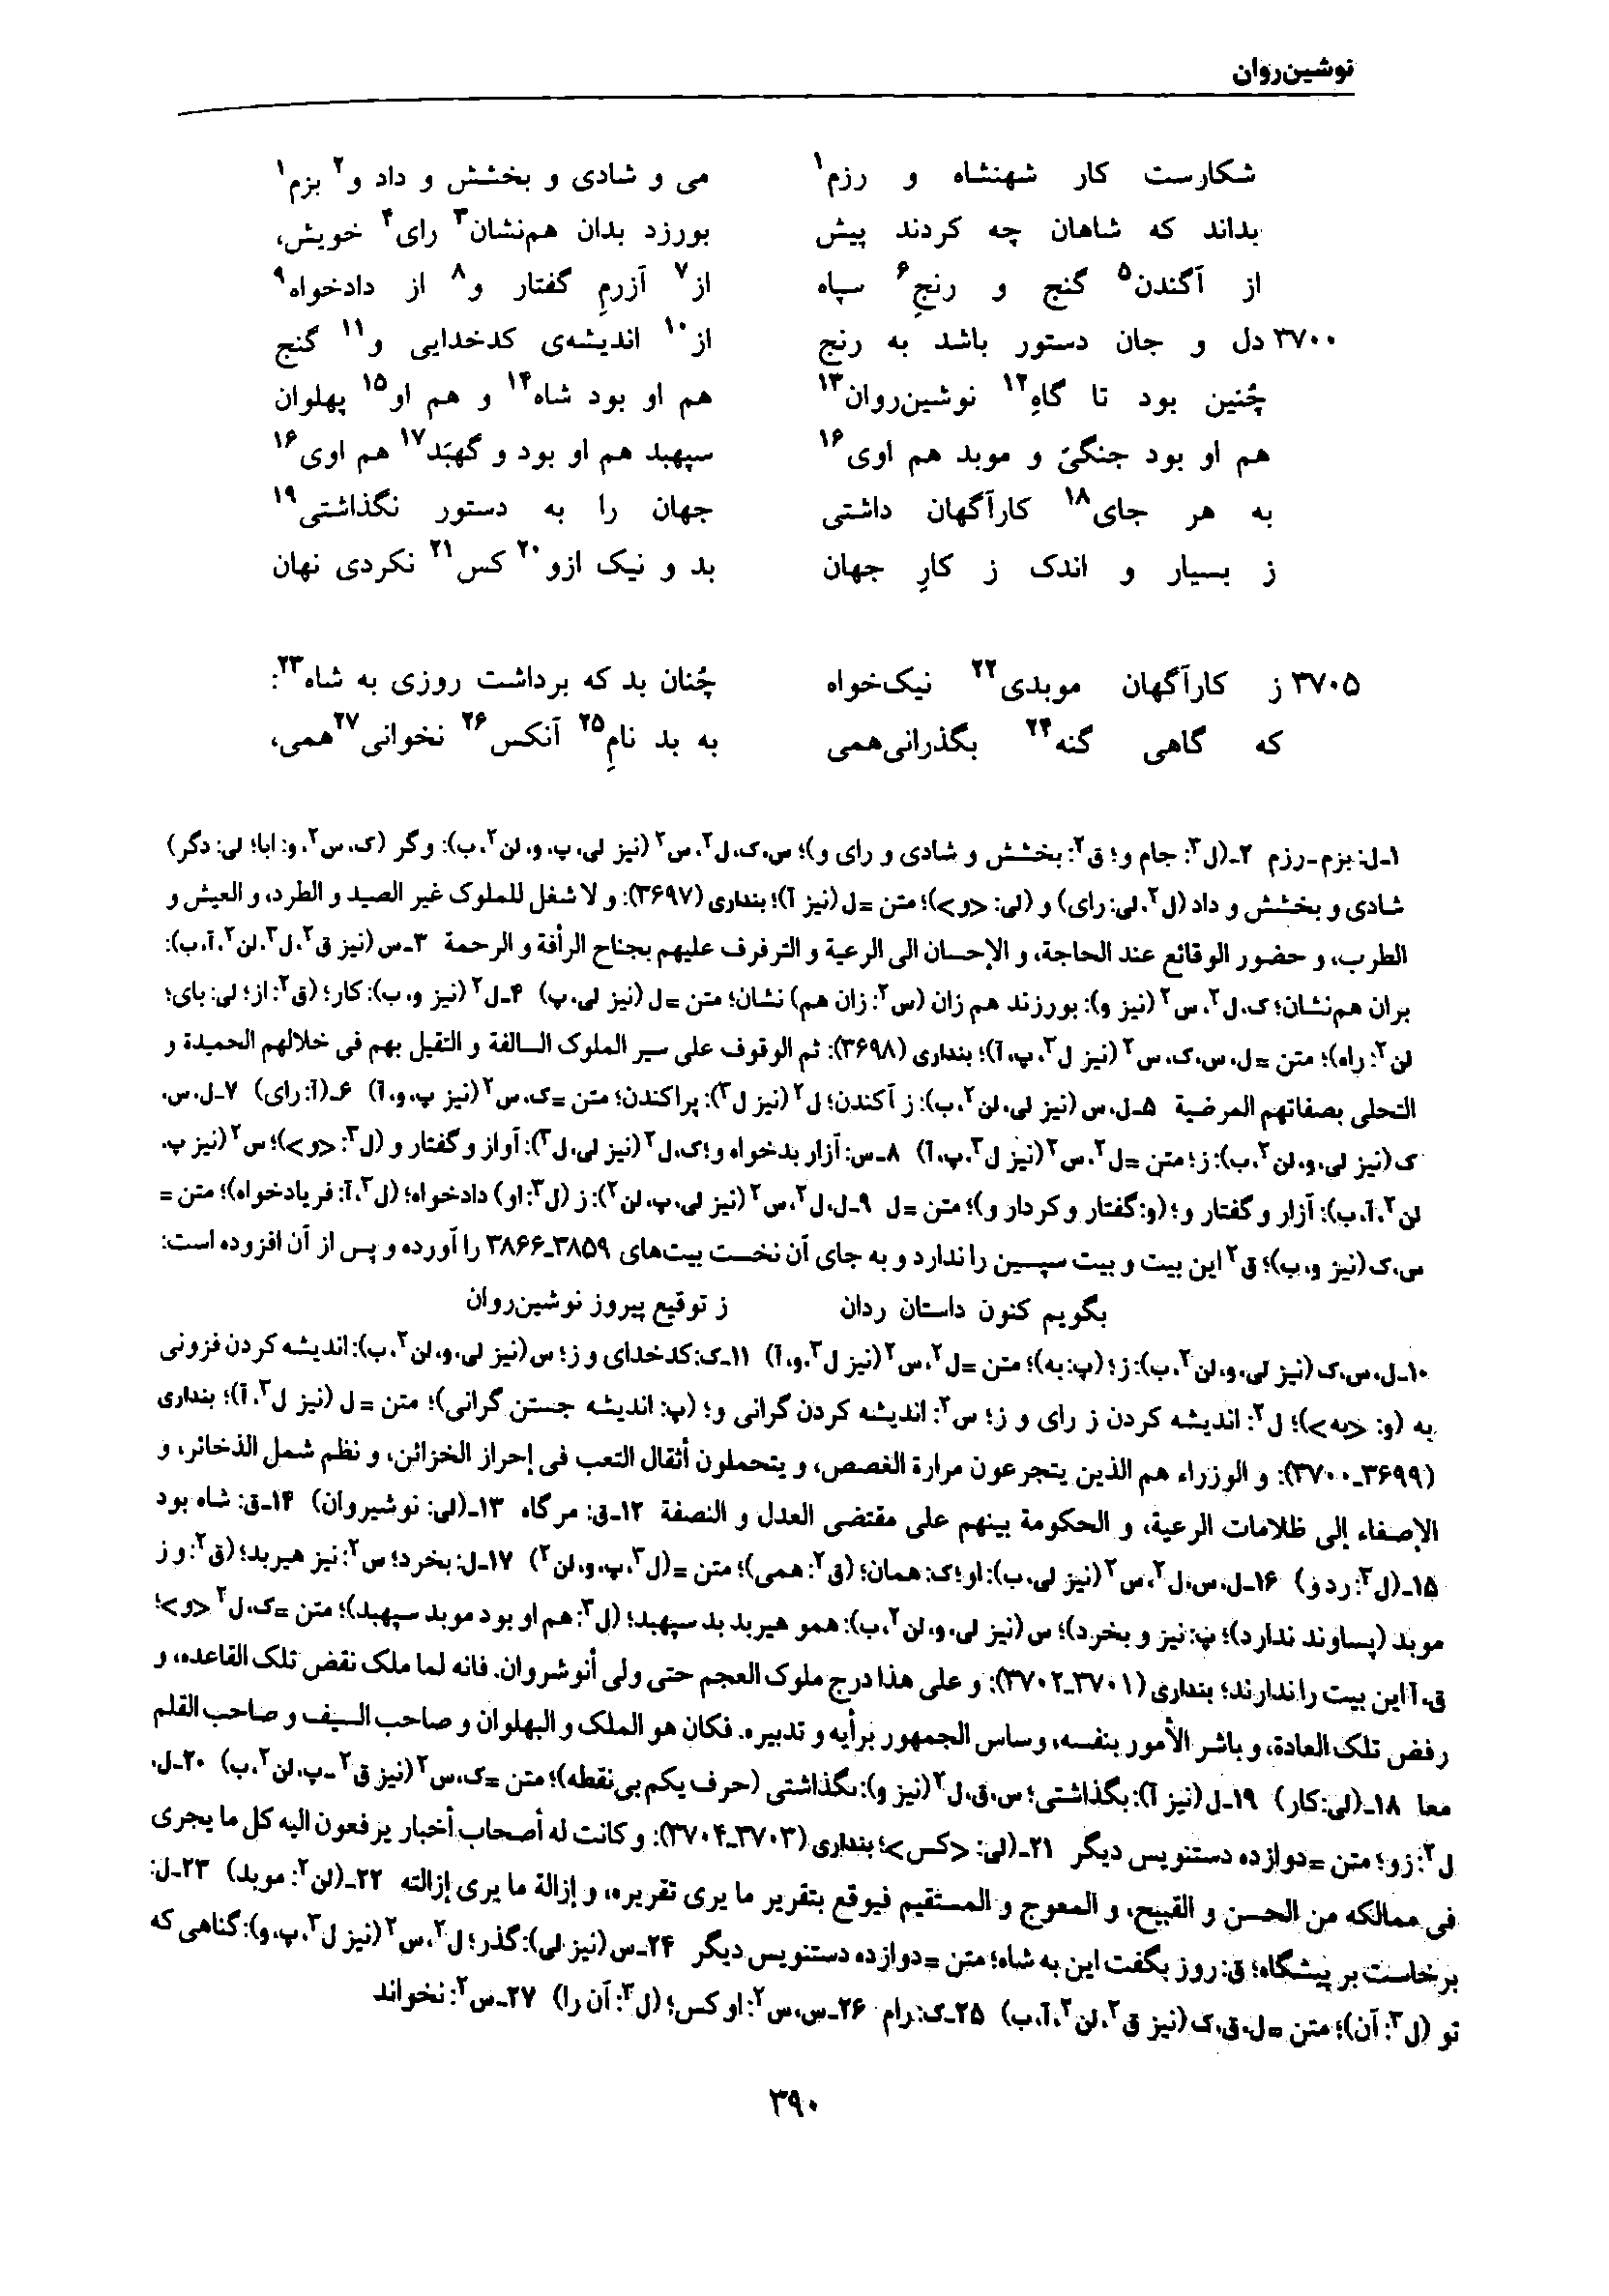 نوشین‌روان
شکارست کار شهنشاه و رزم۱ می و شادی و بخشش و داد و۲ بزم۱
بداند که شاهان چه کردند پیش بورزد بدان هم‌نشان۳ رای۴ خویش،
از آگندن۵ گنج و رنجِ۶ سپاه از۷ آزرمِ گفتار و۸ از دادخواه۹
۳۷۰۰ دل و جان دستور باشد به رنج از۱۰ اندیشه‌ی کدخدایی و۱۱ گنج
چُنین بود تا گاهِ۱۲ نوشین‌روان۱۳ هم او بود شاه۱۴ و هم او۱۵ پهلوان
هم او بود جنگیّ و موبد هم اوی۱۶ سپهبد هم او بود و گهبَد۱۷ هم اوی۱۶
به هر جای۱۸ کارآگهان داشتی جهان را به دستور نگذاشتی۱۹
ز بسیار و اندک ز کارِ جهان بد و نیک ازو۲۰ کس۲۱ نکردی نهان
۳۷۰۵ ز کارآگهان موبدی۲۲ نیک‌خواه چُنان بد که برداشت روزی به شاه۲۳:
که گاهی گنه۲۴ بگذرانی‌همی به بد نامِ۲۵ آنکس۲۶ نخوانی۲۷همی،
۱ـ ل: بزم-رزم ۲ـ (ل۳: جام و؛ ق۲: بخشش و شادی و رای و)؛ س، ک، ل۲، س۲ (نیز لی، پ، و، لن۲، ب): وگر (ک، س۲، و: ابا؛ لی: دگر)
شادی و بخشش و داد (ل۲، لی: رای) و (لی: <و>)؛ متن = ل (نیز آ)؛ بنداری (۳۶۹۷): و لا شغل للملوک غیر الصید و الطرد، و العیش و
الطرب، و حضور الوقائع عند الحاجة، و الإحسان الی الرعیة و الترفرف علیهم بجناح الرأفة و الرحمة ۳ـ س (نیز ق۲، ل۳، لن۲، آ، ب):
بران هم‌نشان؛ ک، ل۲، س۲ (نیز و): بورزند هم زان (س۲: زان هم) نشان؛ متن = ل (نیز لی، پ) ۴ـ ل۲ (نیز و، ب): کار؛ (ق۲: از؛ لی: بای؛
لن۲: راه)؛ متن = ل، س، ک، س۲ (نیز ل۳، پ، آ)؛ بنداری (۳۶۹۸): ثم الوقوف علی سیر الملوک السالفة و التقیل بهم فی خلالهم الحمیدة و
التحلی بصفاتهم المرضیة ۵ـ ل، س (نیز لی، لن۲، ب): ز آکندن؛ ل۲ (نیز ل۳): پراکندن؛ متن = ک، س۲ (نیز پ، و، آ) ۶ـ (آ: رای) ۷ـ ل، س،
ک (نیز لی، و، لن۲، ب): ز؛ متن = ل۲، س۲ (نیز ل۳، پ، آ) ۸ـ س: آزار بدخواه و؛ ک، ل۲ (نیز لی، ل۳): آواز و گفتار و (ل۳: <و>)؛ س۲ (نیز پ،
لن۲، آ، ب): آزار و گفتار و؛ (و: گفتار و کردار و)؛ متن = ل ۹ـ ل، ل۲، س۲ (نیز لی، پ، لن۲): ز (ل۳: او) دادخواه؛ (ل۳، آ: فریادخواه)؛ متن =
س، ک (نیز و، ب)؛ ق۲ این بیت و بیت سپسین را ندارد و به جای آن نخست بیت‌های ۳۸۵۹ـ۳۸۶۶ را آورده و پس از آن افزوده است:
بگویم کنون داستان ردان ز توقیع پیروز نوشین‌روان
۱۰ـ ل، س، ک (نیز لی، و، لن۲، ب): ز؛ (پ: به)؛ متن = ل۲، س۲ (نیز ل۳، و، آ) ۱۱ـ ک: کدخدای و ز؛ س (نیز لی، و، لن۲، ب): اندیشه کردن فزونی
به (و: <به>)؛ ل۲: اندیشه کردن ز رای و ز؛ س۲: اندیشه کردن گرانی و؛ (پ: اندیشه جستن گرانی)؛ متن = ل (نیز ل۳، آ)؛ بنداری
(۳۶۹۹ـ۳۷۰۰): و الوزراء هم الذین یتجرعون مرارة الغصص، و یتحملون أثقال التعب فی إحراز الخزائن، و نظم شمل الذخائر، و
الإصغاء إلی ظلامات الرعیة، و الحکومة بینهم علی مقتضی العدل و النصفة ۱۲ـ ق: مرگاه ۱۳ـ (لی: نوشیروان) ۱۴ـ ق: شاه بود
۱۵ـ (ل۲: رد و) ۱۶ـ ل، س، ل۲، س۲ (نیز لی، ب): او؛ ک: همان؛ (ق۲: همی)؛ متن = (ل۳، پ، و، لن۲) ۱۷ـ ل: بخرد؛ س۲: نیز هیربد؛ (ق۲: و ز
موبد (پساوند ندارد)؛ پ: نیز و بخرد)؛ س (نیز لی، و، لن۲، ب): همو هیربد بد سپهبد؛ (ل۳: هم او بود موبد سپهبد)؛ متن = ک، ل۲ <و>؛
ق، آ این بیت را ندارند؛ بنداری (۳۷۰۱ـ۳۷۰۲): و علی هذا درج ملوک العجم حتی ولی أنوشروان. فانه لما ملک نقض تلک القاعده، و
رفض تلک العادة، و باشر الأمور بنفسه، و ساس الجمهور برأیه و تدبیره. فکان هو الملک و البهلوان و صاحب السیف و صاحب القلم
معا ۱۸ـ (لی: کار) ۱۹ـ ل (نیز آ): بگذاشتی؛ س، ق، ل۲ (نیز و): ٮگذاشتی (حرف یکم بی‌نقطه)؛ متن = ک، س۲ (نیز ق۲ـ پ، لن۲، ب) ۲۰ـ ل،
ل۲: زو؛ متن = دوازده دستنویس دیگر ۲۱ـ (لی: <کس>؛ بنداری (۳۷۰۳ـ۳۷۰۴): و کانت له أصحاب أخبار یرفعون الیه کل ما یجری
فی ممالکه من الحسن و القبیح، و المعوج و المستقیم فیوقع بتقریر ما یری تقریره، و إزالة ما یری إزالته ۲۲ـ (لن۲: موبد) ۲۳ـ ل:
برخاست بر پیشگاه؛ ق: روز بگفت این به شاه؛ متن = دوازده دستنویس دیگر ۲۴ـ س (نیز لی): گذر؛ ل۲، س۲ (نیز ل۳، پ، و): گناهی که
تو (ل۳: آن)؛ متن = ل، ق، ک (نیز ق۲، لن۲، آ، ب) ۲۵ـ ک: رام ۲۶ـ س، س۲: او کس؛ (ل۳: آن را) ۲۷ـ س۲: نخواند
۳۹۰